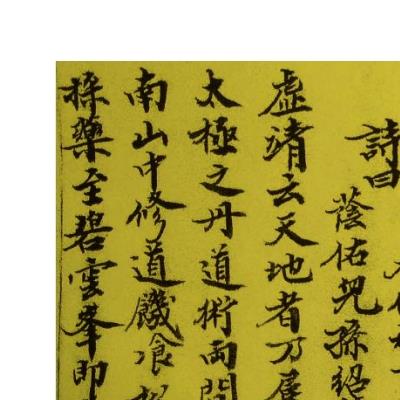 詩曰
蔭佑兒孫紹
虛靖云天地者乃
太極之丹道術兩間
南山中修道饑飡松
採藥至碧雲峯即